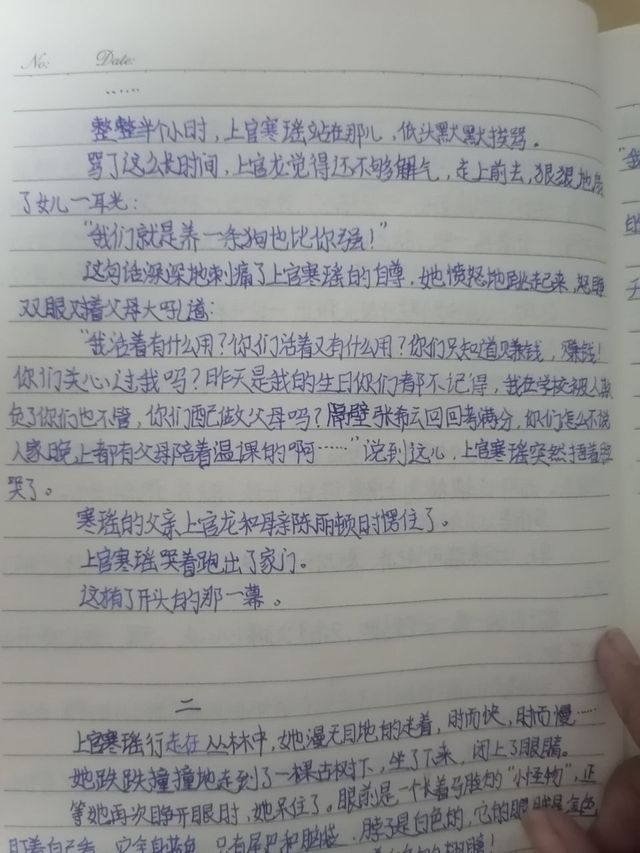 No: Date:
……
整整半个小时，上官寒瑶站在那儿，低头默默挨骂。
骂了这么长时间，上官龙觉得还不够解气，走上前去，狠狠地扇
了女儿一耳光：
“我们就是养一条狗也比你强！”
这句话深深地刺痛了上官寒瑶的自尊，她愤怒地跳起来，怒睁
双眼对着父母大吼道：
“我活着有什么用？你们活着又有什么用？你们只知道赚钱，赚钱！
你们关心过我吗？昨天是我的生日你们都不记得，我在学校被人欺
负了你们也不管，你们配做父母吗？隔壁张希云回回考满分，你们怎么不说
人家晚上都有父母陪着温课的啊……”说到这儿，上官寒瑶突然捂着脸
哭了。
寒瑶的父亲上官龙和母亲陈丽顿时愣住了。
上官寒瑶哭着跑出了家门。
这就有了开头的那一幕。
二
上官寒瑶行走在丛林中，她漫无目地的走着，时而快，时而慢……
她跌跌撞撞地走到了一棵古树下，坐了下来，闭上了眼睛。
等她再次睁开眼时，她呆住了。眼前是一个长着马脸的“小怪物”，正
盯着自己看，它全身蓝色，只有尾巴和脑袋、脖子是白色的，它的眼睛是蓝色